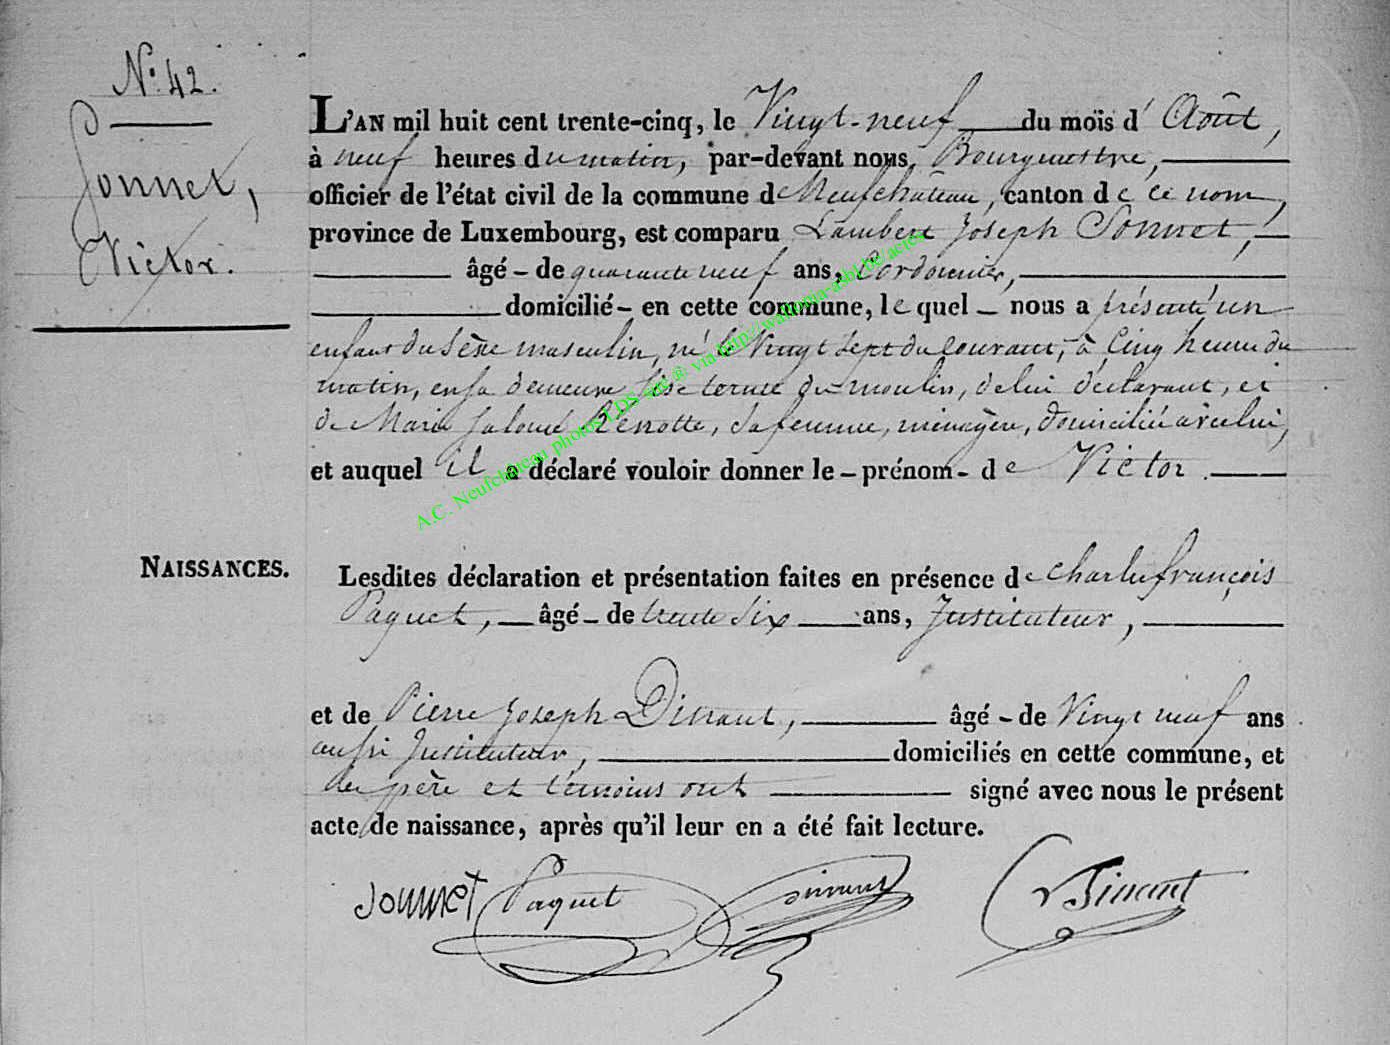 N.° 42.
Sonnet,
Victor.
L'AN mil huit cent trente-cinq, le Vingt-neuf du mois d' Août,
à neuf heures du matin, par-devant nous, Bourgmestre,
officier de l'état civil de la commune de Neufchâteau, canton de ce nom,
province de Luxembourg, est comparu Lambert Joseph Sonnet,
âgé - de quarante neuf ans, Cordonnier,
domicilié - en cette commune, le quel - nous a présenté un
enfant du sexe masculin, né le Vingt sept du courant, à Cinq heures du
matin, en sa demeure, du moulin, de lui déclarant, et
de Marie Salomé Renotte, sa femme, ménagère, domiciliée avec lui,
et auquel il a déclaré vouloir donner le - prénom - de Victor.
NAISSANCES.
Lesdites déclaration et présentation faites en présence de Charles françois
Paquet, âgé - de trente six ans, Instituteur,
et de Pierre Joseph Dinant, âgé - de Vingt neuf ans
aussi Instituteur, domiciliés en cette commune, et
les père et témoins ont signé avec nous le présent
acte de naissance, après qu'il leur en a été fait lecture.
Sonnet Paquet Dinant
A.C. Neufchâteau photos LDS site ® via http://wallonia-asbl.be/actes